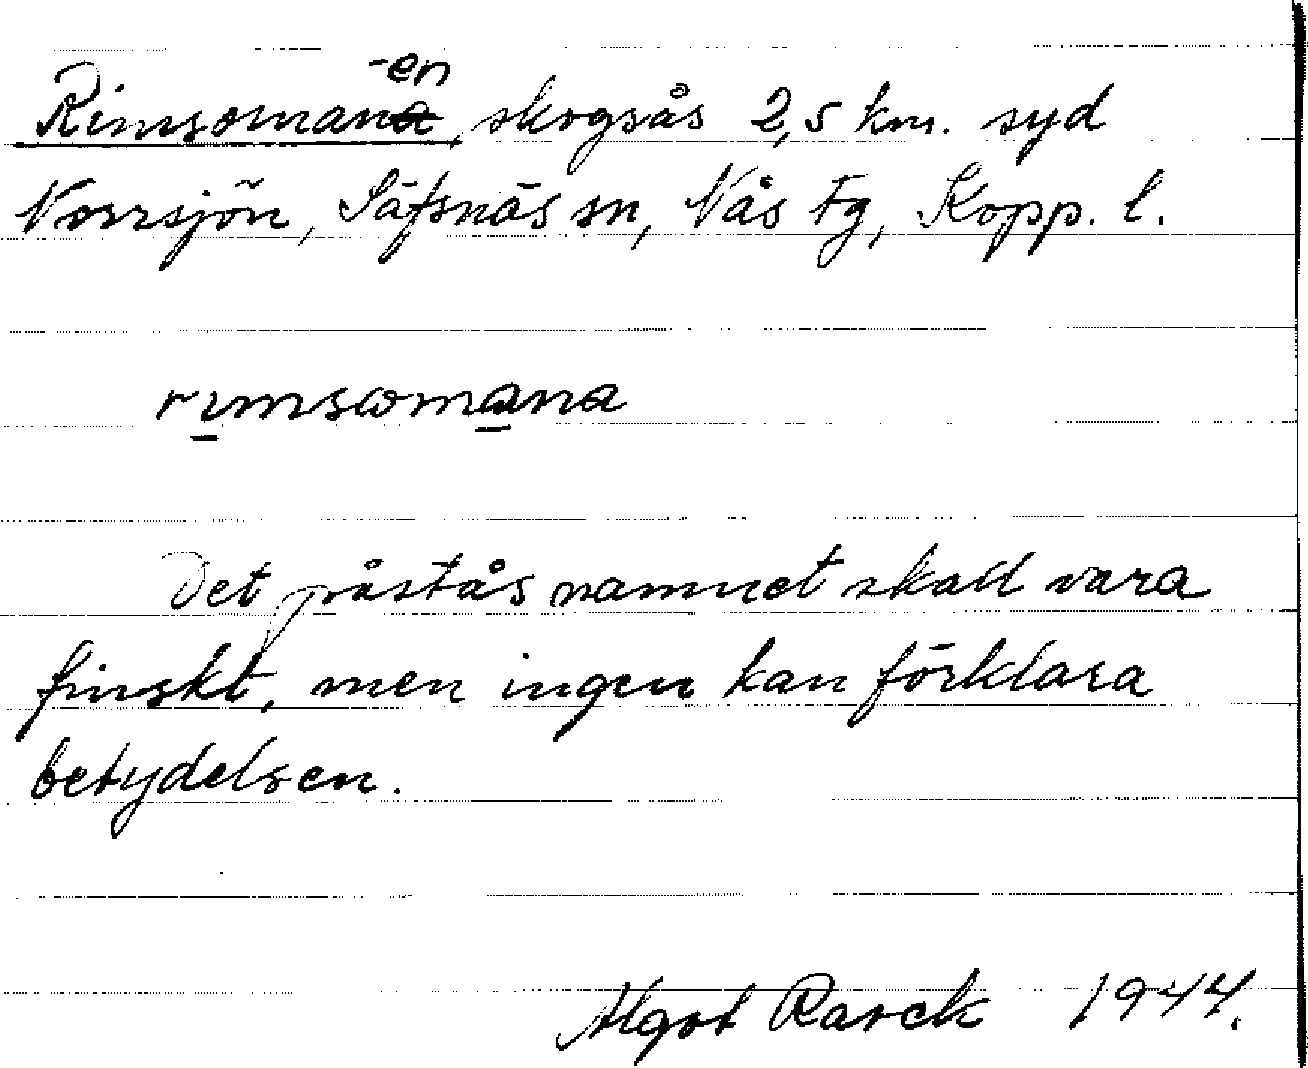 -en
Rimsomana, skogsås 2,5 km. syd
Norrsjön, Säfsnäs sn, Nås tg, Kopp. l.
rimsωmana
Det påstås namnet skall vara
finskt, men ingen kan förklara
betydelsen.
Algot Rarck 1944.